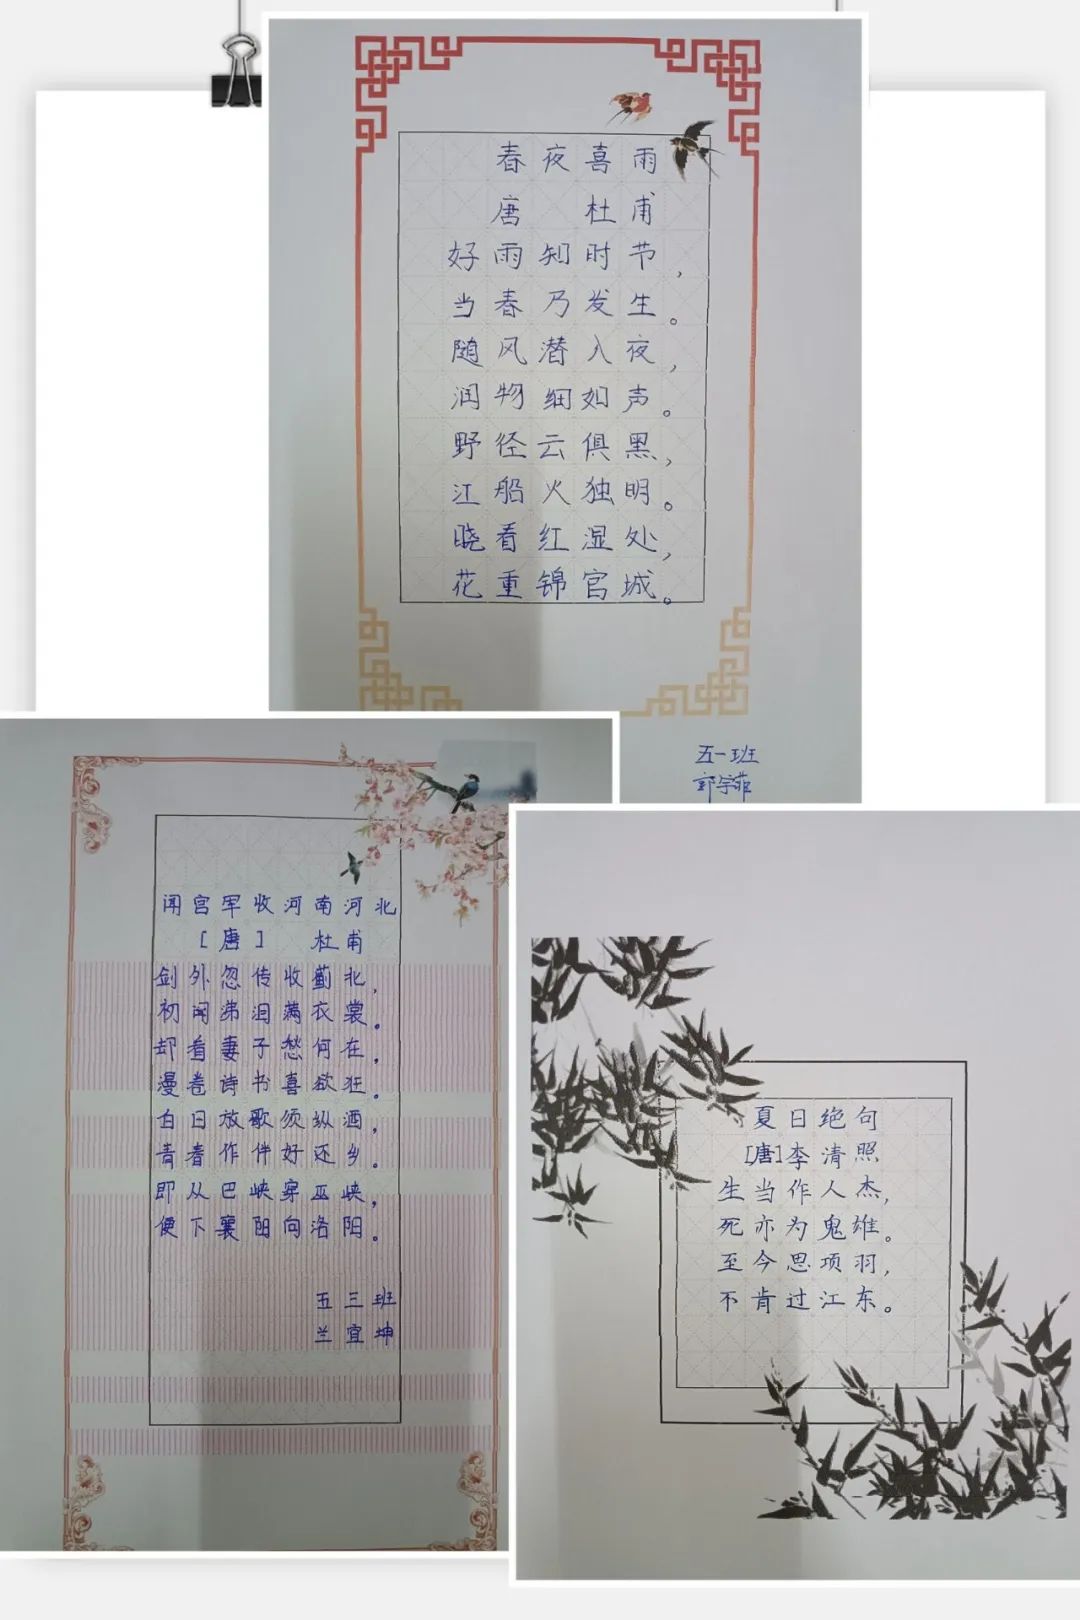 春夜喜雨
唐 杜甫
好雨知时节，
当春乃发生。
随风潜入夜，
润物细如声。
野径云俱黑，
江船火独明。
晓看红湿处，
花重锦官城。
五一班
郭宇菲
闻宫军收河南河北
[唐] 杜甫
剑外忽传收蓟北，
初闻涕泪满衣裳。
却看妻子愁何在，
漫卷诗书喜欲狂。
白日放歌须纵酒，
青春作伴好还乡。
即从巴峡穿巫峡，
便下襄阳向洛阳。
五三班
兰宜坤
夏日绝句
[唐]李清照
生当作人杰，
死亦为鬼雄。
至今思项羽，
不肯过江东。